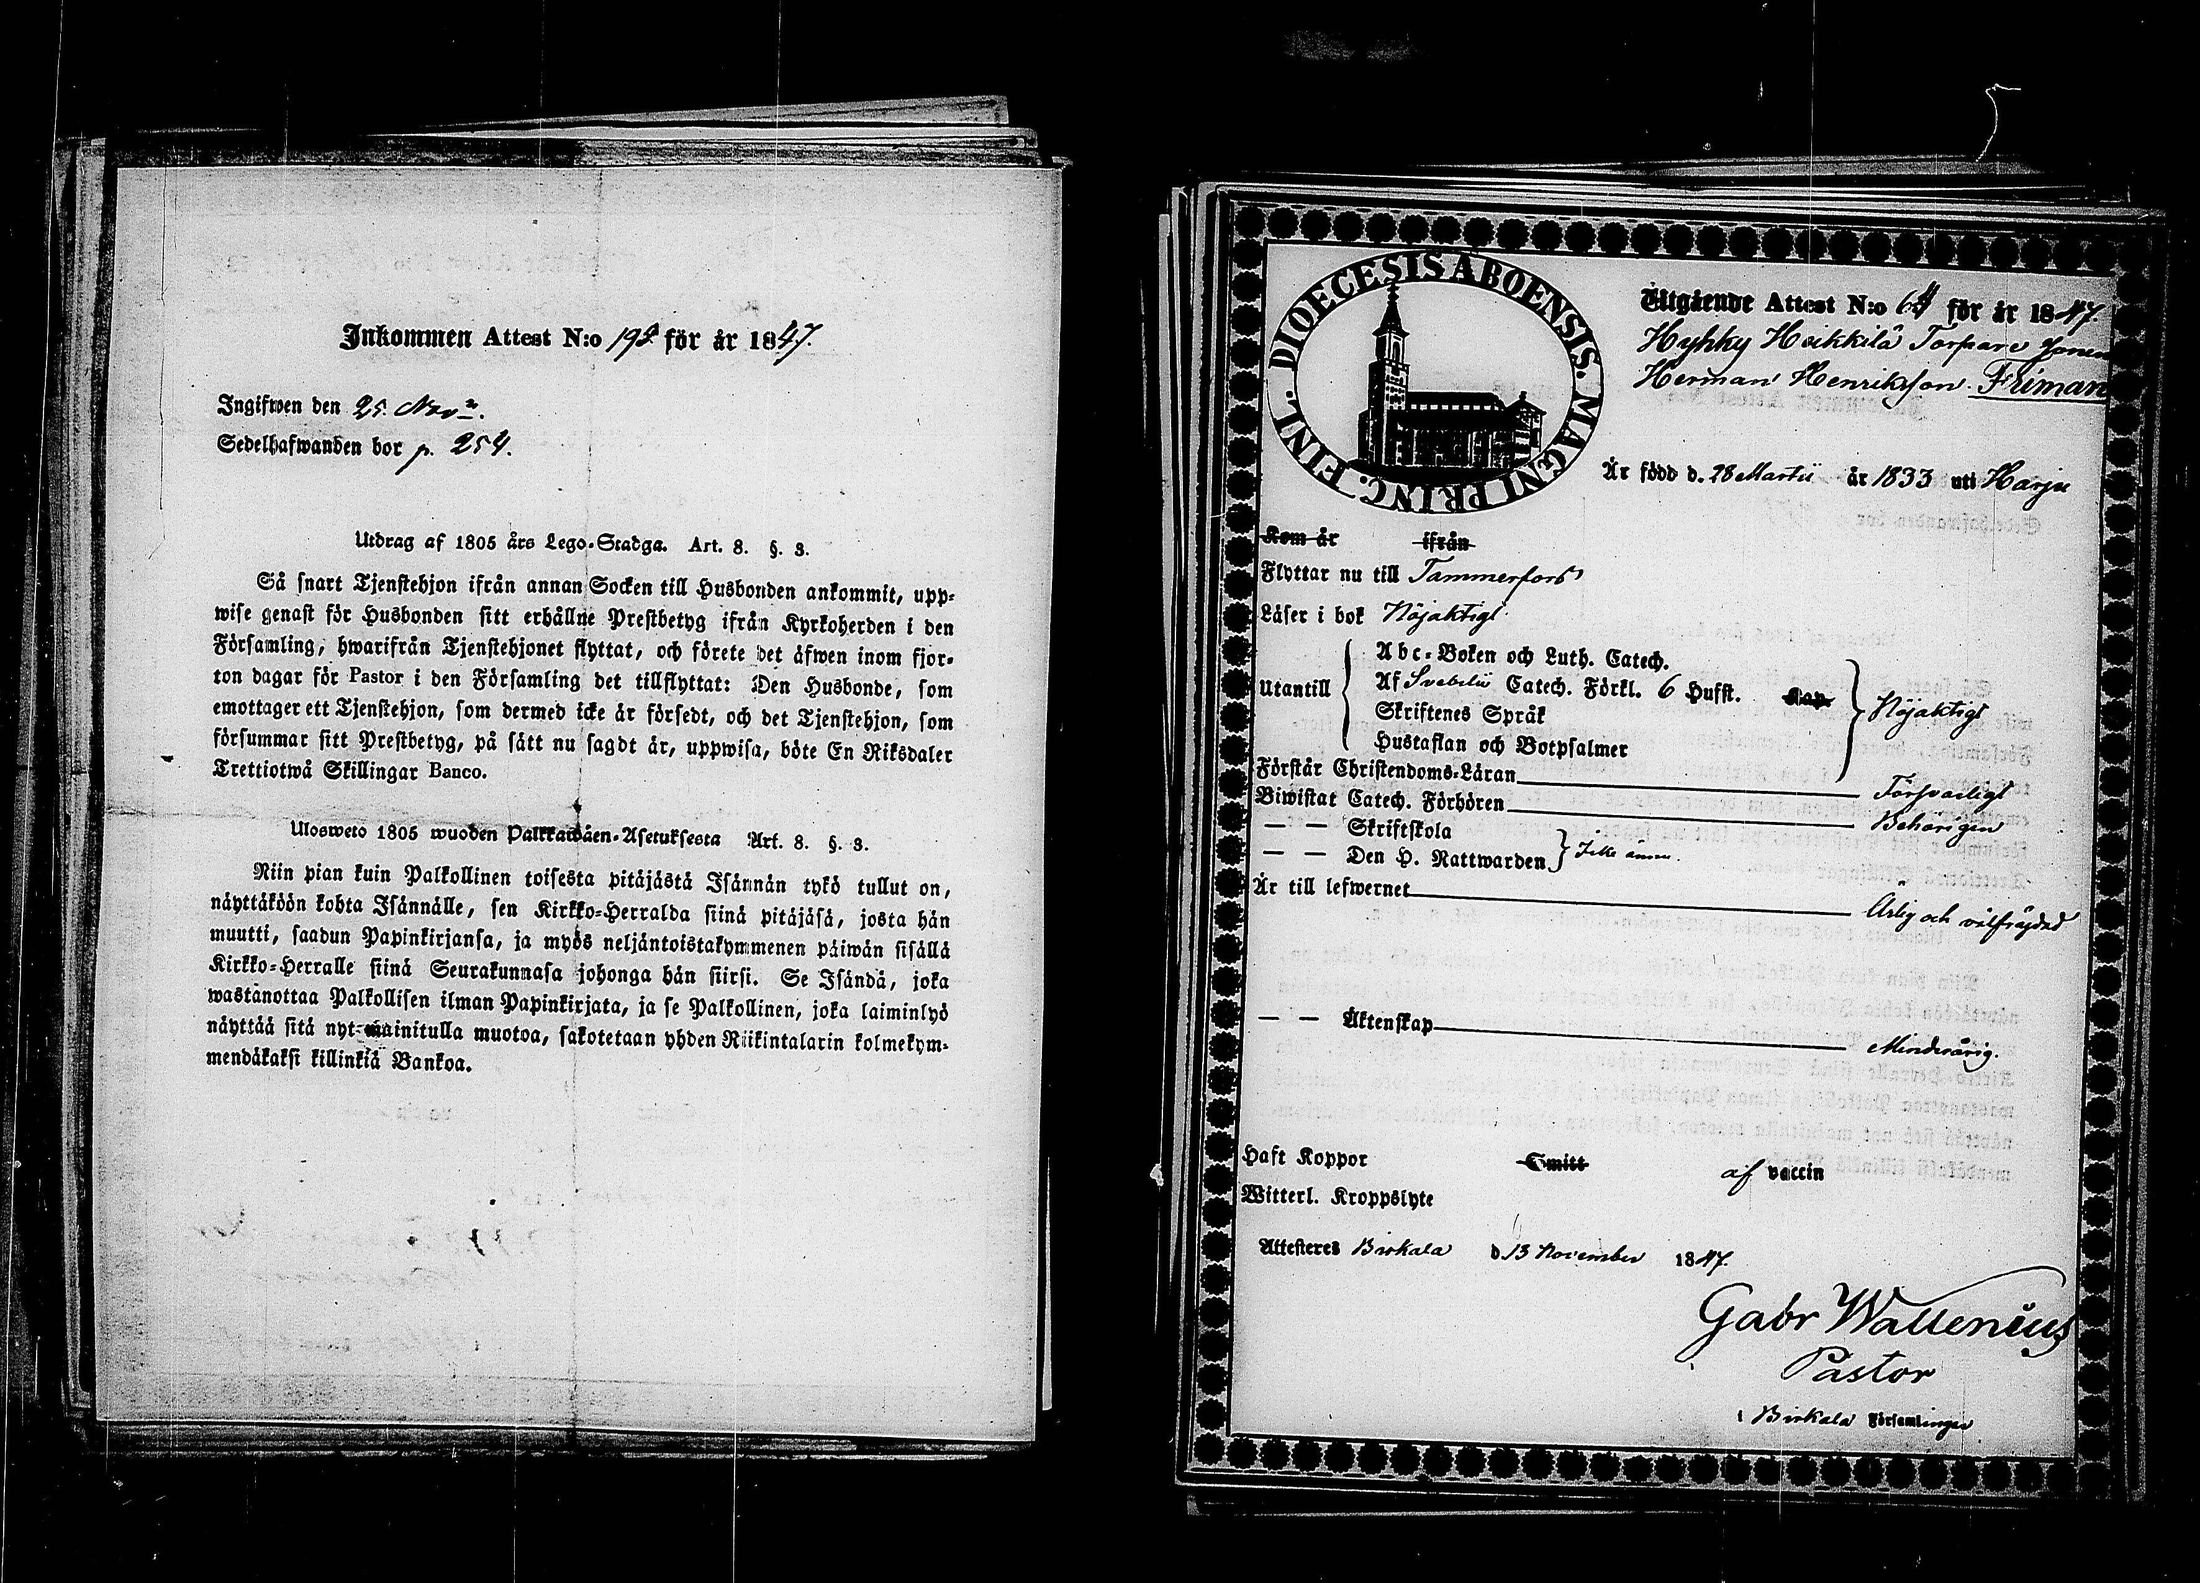 Inkommen Attest N:o 195. för år 1847.
Ingifwen den 25. Nov.
Sedelhafwanden bor p. 254.
Utdrag af 1805 års Lego-Stadga. Art. 8. §. 3.
Så snart Tjenstehjon ifrån annan Socken till Husbonden ankommit, upp-
wise genast för Husbonden sitt erhållne Prestbetyg ifrån Kyrkoherden i den
Församling, hwarifrån Tjenstehjonet flyttat, och förete det äfwen inom fjor-
ton dagar för Pastor i den Församling det tillflyttat: Den Husbonde, som
emottager ett Tjenstehjon, som dermed icke är försedt, och det Tjenstehjon, som
försummar sitt Prestbetyg, på sätt nu sagdt är, uppwisa, böte En Riksdaler
Trettiotwå Skillingar Banco.
Ulosweto 1805 wuoden Palkkawäen-Asetuksesta Art. 8. §. 3.
Niin pian kuin Palkollinen toisesta pitäjästä Isännän tykö tullut on,
näyttäköön kohta Isännälle, sen Kirkko-Herralda siinä pitäjäsä, josta hän
muutti, saadun Papinkirjansa, ja myös neljäntoistakymmenen päiwän sisällä
Kirkko-Herralle siinä Seurakunnasa johonga hän siirsi. Se Isändä, joka
wastanottaa Palkollisen ilman Papinkirjata, ja se Palkollinen, joka laiminlyö
näyttää sitä nyt-mainitulla muotoa, sakotetaan yhden Riikintalarin kolmekym-
mendäkaksi killinkiä Bankoa.
5
DIOECESIS ABOENSIS. MAGNI PRINC. FINL.
Utgående Attest N:o 64 för år 1847.
Hyhky Heikkilä Torpare
Herman Henriksson Friman
Är född d. 28 Martii år 1833 uti Harju
Kom år ifrån
Flyttar nu till Tammerfors
Läser i bok Nöjaktigt
Utantill
Abc-Boken och Luth. Catech.
Af Svebelii Catech. Förkl. 6 Hufst. Kap.
Skriftenes Språk
Hustaflan och Botpsalmer
Nöjaktigt
Förstår Christendoms-Läran Försvarligt
Biwistat Catech. Förhören Behörigen
— — Skriftskola
— — Den H. Nattwarden Icke ännu.
Är till lefwernet Ärlig och välfräjdad
— — Äktenskap Minderårig.
Haft Koppor Smitt af vaccin
Witterl. Kroppslyte
Attesteres Birkala d. 13 November 1847.
Gabr Wallenius
Pastor
i Birkala Församlingen